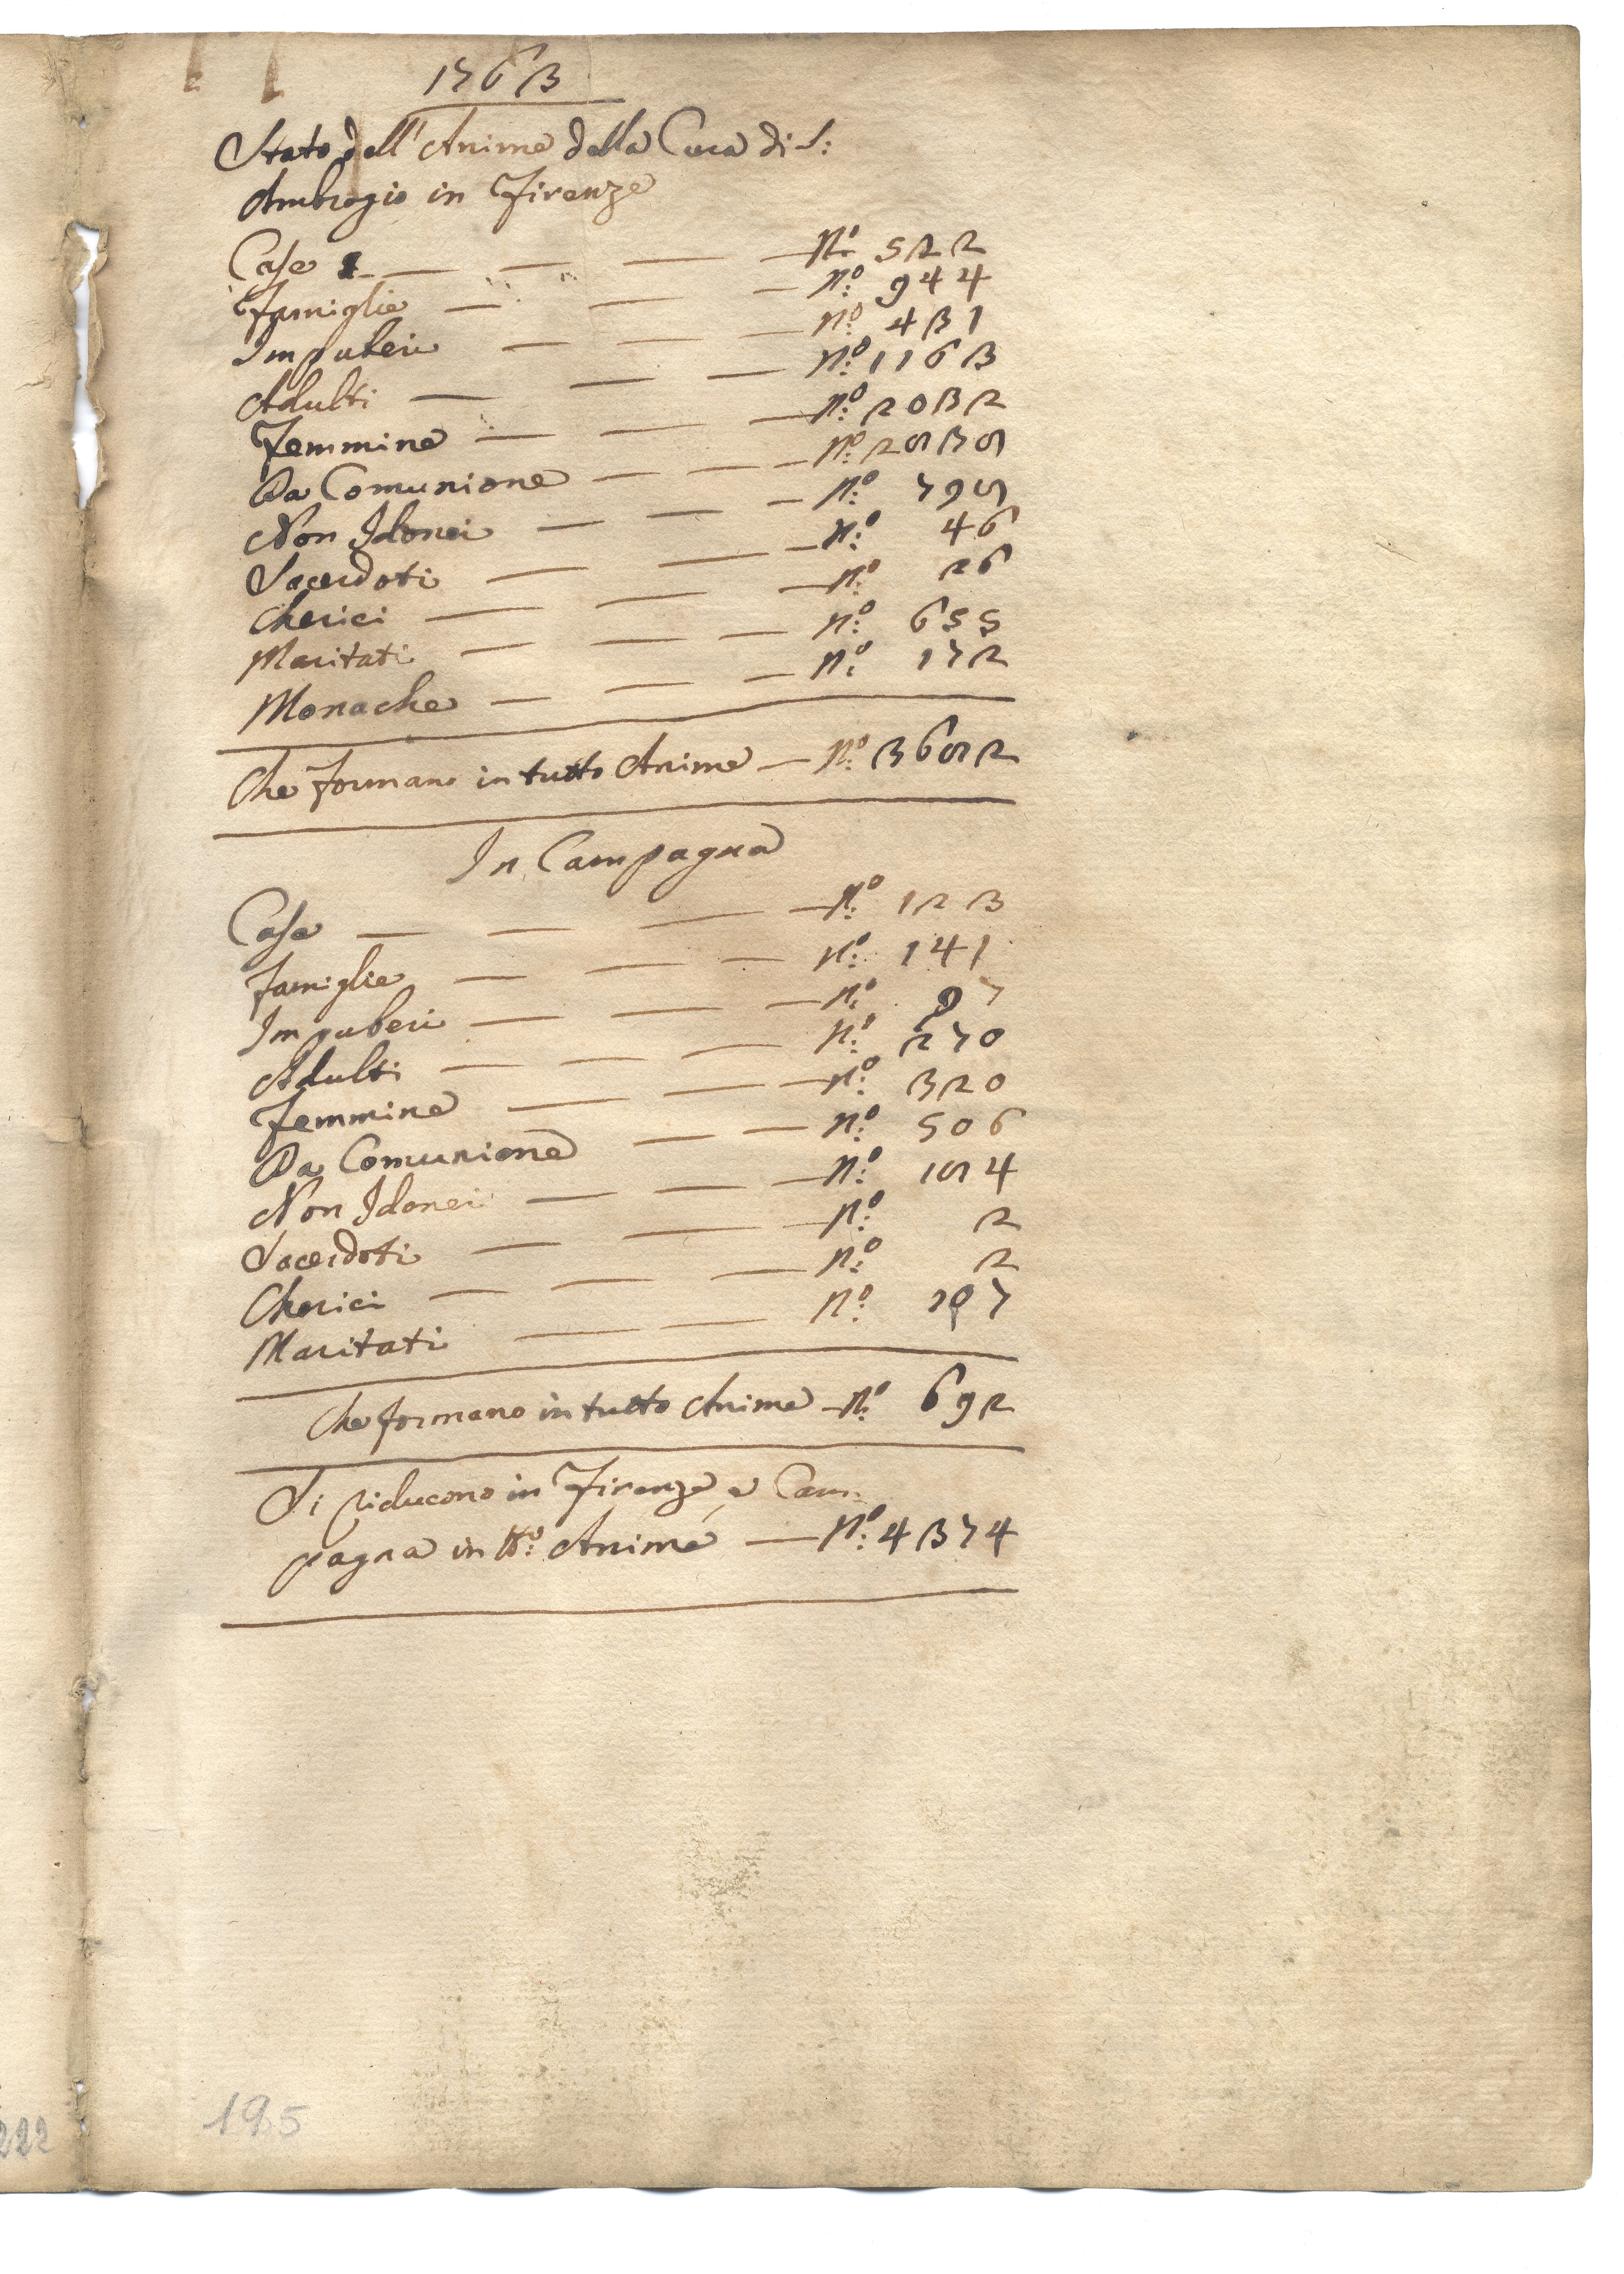 1763
Stato dell'Anime della Cura di S:
Ambrogio in Firenze
Case — — — — N.º 522
Famiglie — — — N.º 944
Impuberi — — — N.º 431
Adulti — — — N.º 1163
Femmine — — — N.º 2032
Da Comunione — — — N.º 2838
Non Idonei — — — N.º 798
Sacerdoti — — — N.º 46
Cherici — — — N.º 26
Maritati — — — N.º 655
Monache — — — N.º 172
Che formano in tutto Anime — N.º 3682
In Campagna
Case — — — — N.º 123
Famiglie — — — N.º 141
Impuberi — — — N.º 97
Adulti — — — N.º 270
Femmine — — — N.º 320
Da Comunione — — N.º 506
Non Idonei — — — N.º 184
Sacerdoti — — — N.º 2
Cherici — — — N.º 2
Maritati — — N.º 197
Che formano in tutto Anime — N.º 692
Si riducono in Firenze, e Cam-
pagna in tt.º Anime — N.º 4374
222
195